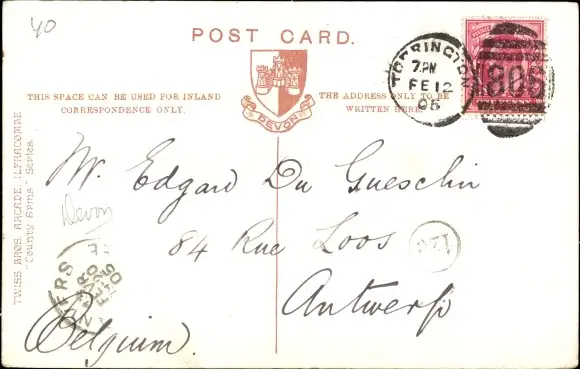 40
POST CARD.
THIS SPACE CAN BE USED FOR INLAND
CORRESPONDENCE ONLY.
THE ADDRESS ONLY TO BE
WRITTEN HERE.
DEVON
TORRINGTON
7. PM
FE 12
05
805
Mr. Edgard Du Gueschin
84 Rue Loos
Antwerp
Belgium.
Devon
TWISS BROS. ARCADE, ILFRACOMBE
"County Arms" Series.